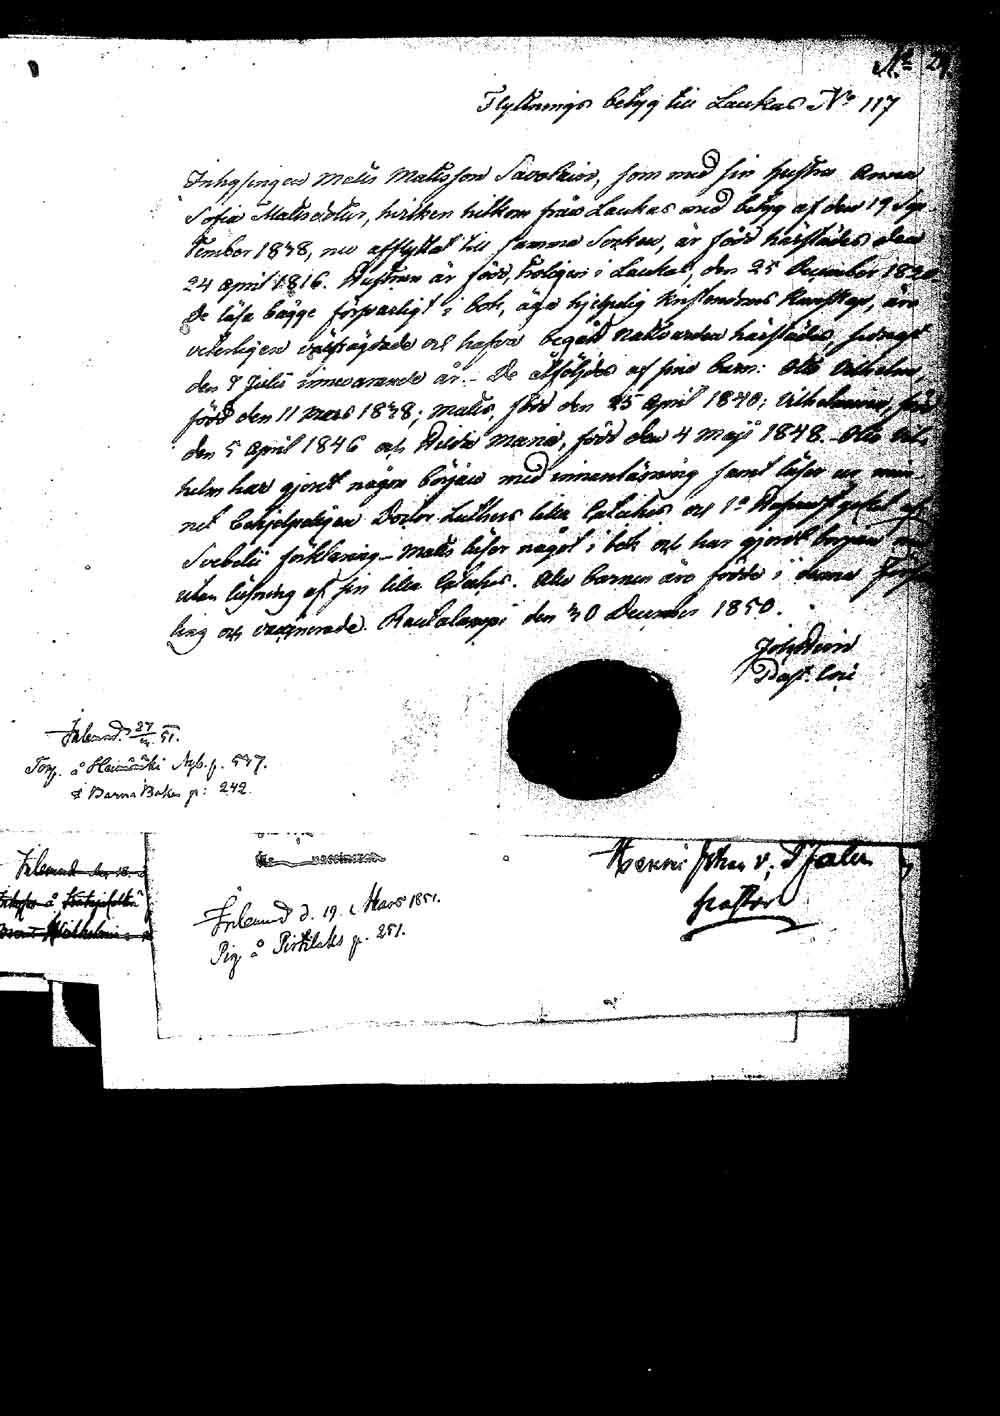 No 29.
Flyttnings betyg till Laukas No 117
Inhysingen Matts Mattsson Savolain, som med sin hustru Anna
Sofia Mattsdotter, hvilken hitkom från Laukas med betyg af den 19 Sep-
tember 1838, nu afflyttat till samma Socken, är född härstädes den
24 April 1816. Hustrun är född, troligen i Laukas, den 25 December 1820.
De läsa bägge försvarligt i bok, äga hjelpelig kristendoms kunskap, äro
veterligen välfrägdade och hafva begått nattvarden härstädes, senast
den 7 Julii innevarande år. - De åtföljas af sina barn: Otto Vilhelm,
född den 11 Mars 1838; Matts, född den 25 April 1840; Vilhelmina, född
den 5 April 1846 och Hilda Maria, född den 4 Maji 1848. - Otto Vil-
helm har gjordt någon början med innanläsning samt läser ur min-
net behjelpeligen Doctor Luthers lilla Cateches och 1a
Svebelii förklaring - Matts läser något i bok och har gjordt början
utan läsning af sin lilla Cateches. Alla barnen äro födde i denna
ling och vaccinerade. Rautalampi den 30 December 1850.
Past.
Inlemnd. 27/3 51.
Torp. å Heinämäki Nyb. p. 537.
& Barna Boken p: 242.
Inlemnad
Inlemnad d. 19. Mars 1851.
Pig å Pirtilaks p. 251.
Johan
Pastor
Wilhelmina